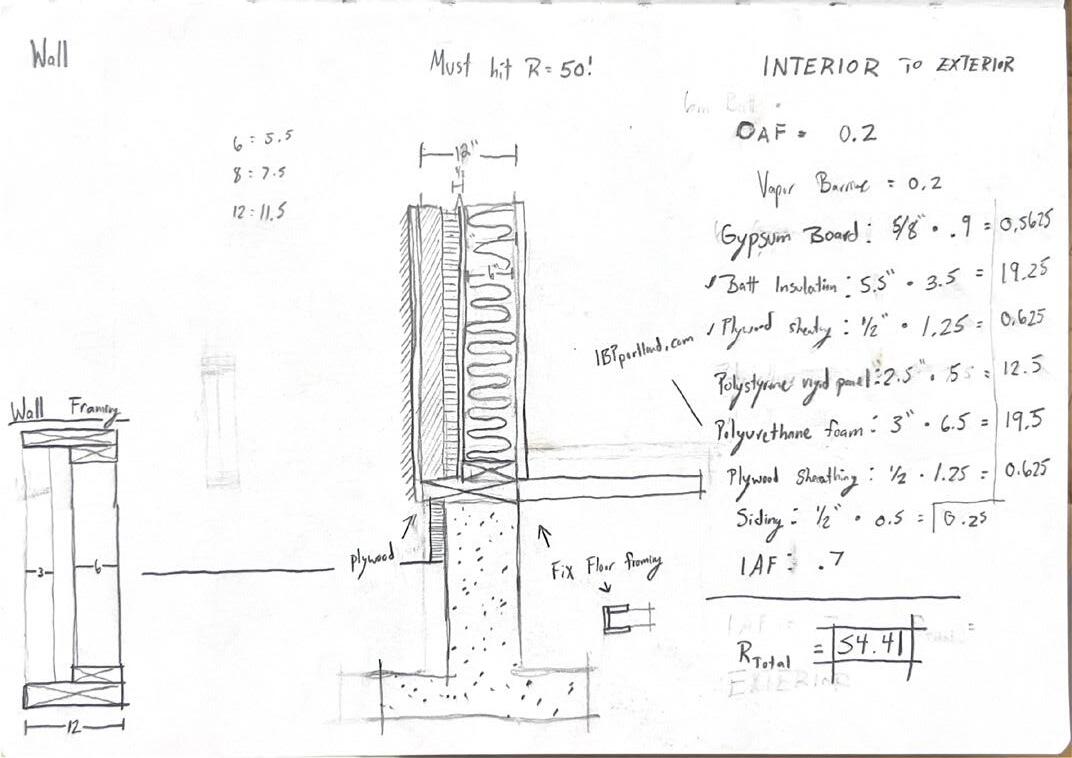 Wall
Must hit R=50!
INTERIOR TO EXTERIOR
6 = 5.5
8 = 7.5
12 = 11.5
12"
6"
OAF = 0.2
Vapor Barrier = 0.2
Gypsum Board: 5/8" · .9 = 0.5625
Batt Insulation: 5.5" · 3.5 = 19.25
Plywood : 1/2" · 1.25 = 0.625
Polystyrene rigid panel: 2.5" · 5 = 12.5
Polyurethane foam: 3" · 6.5 = 19.5
Plywood Sheathing: 1/2 · 1.25 = 0.625
Siding: 1/2" · 0.5 = 0.25
IAF: .7
RTotal = 54.41
Wall Framing
3
6
12
plywood
Fix Floor framing